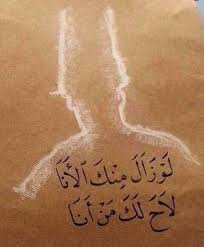 لَوْ زَالَ مِنْكَ الأَنَا
لَاحَ لَكَ مَنْ أَنَا